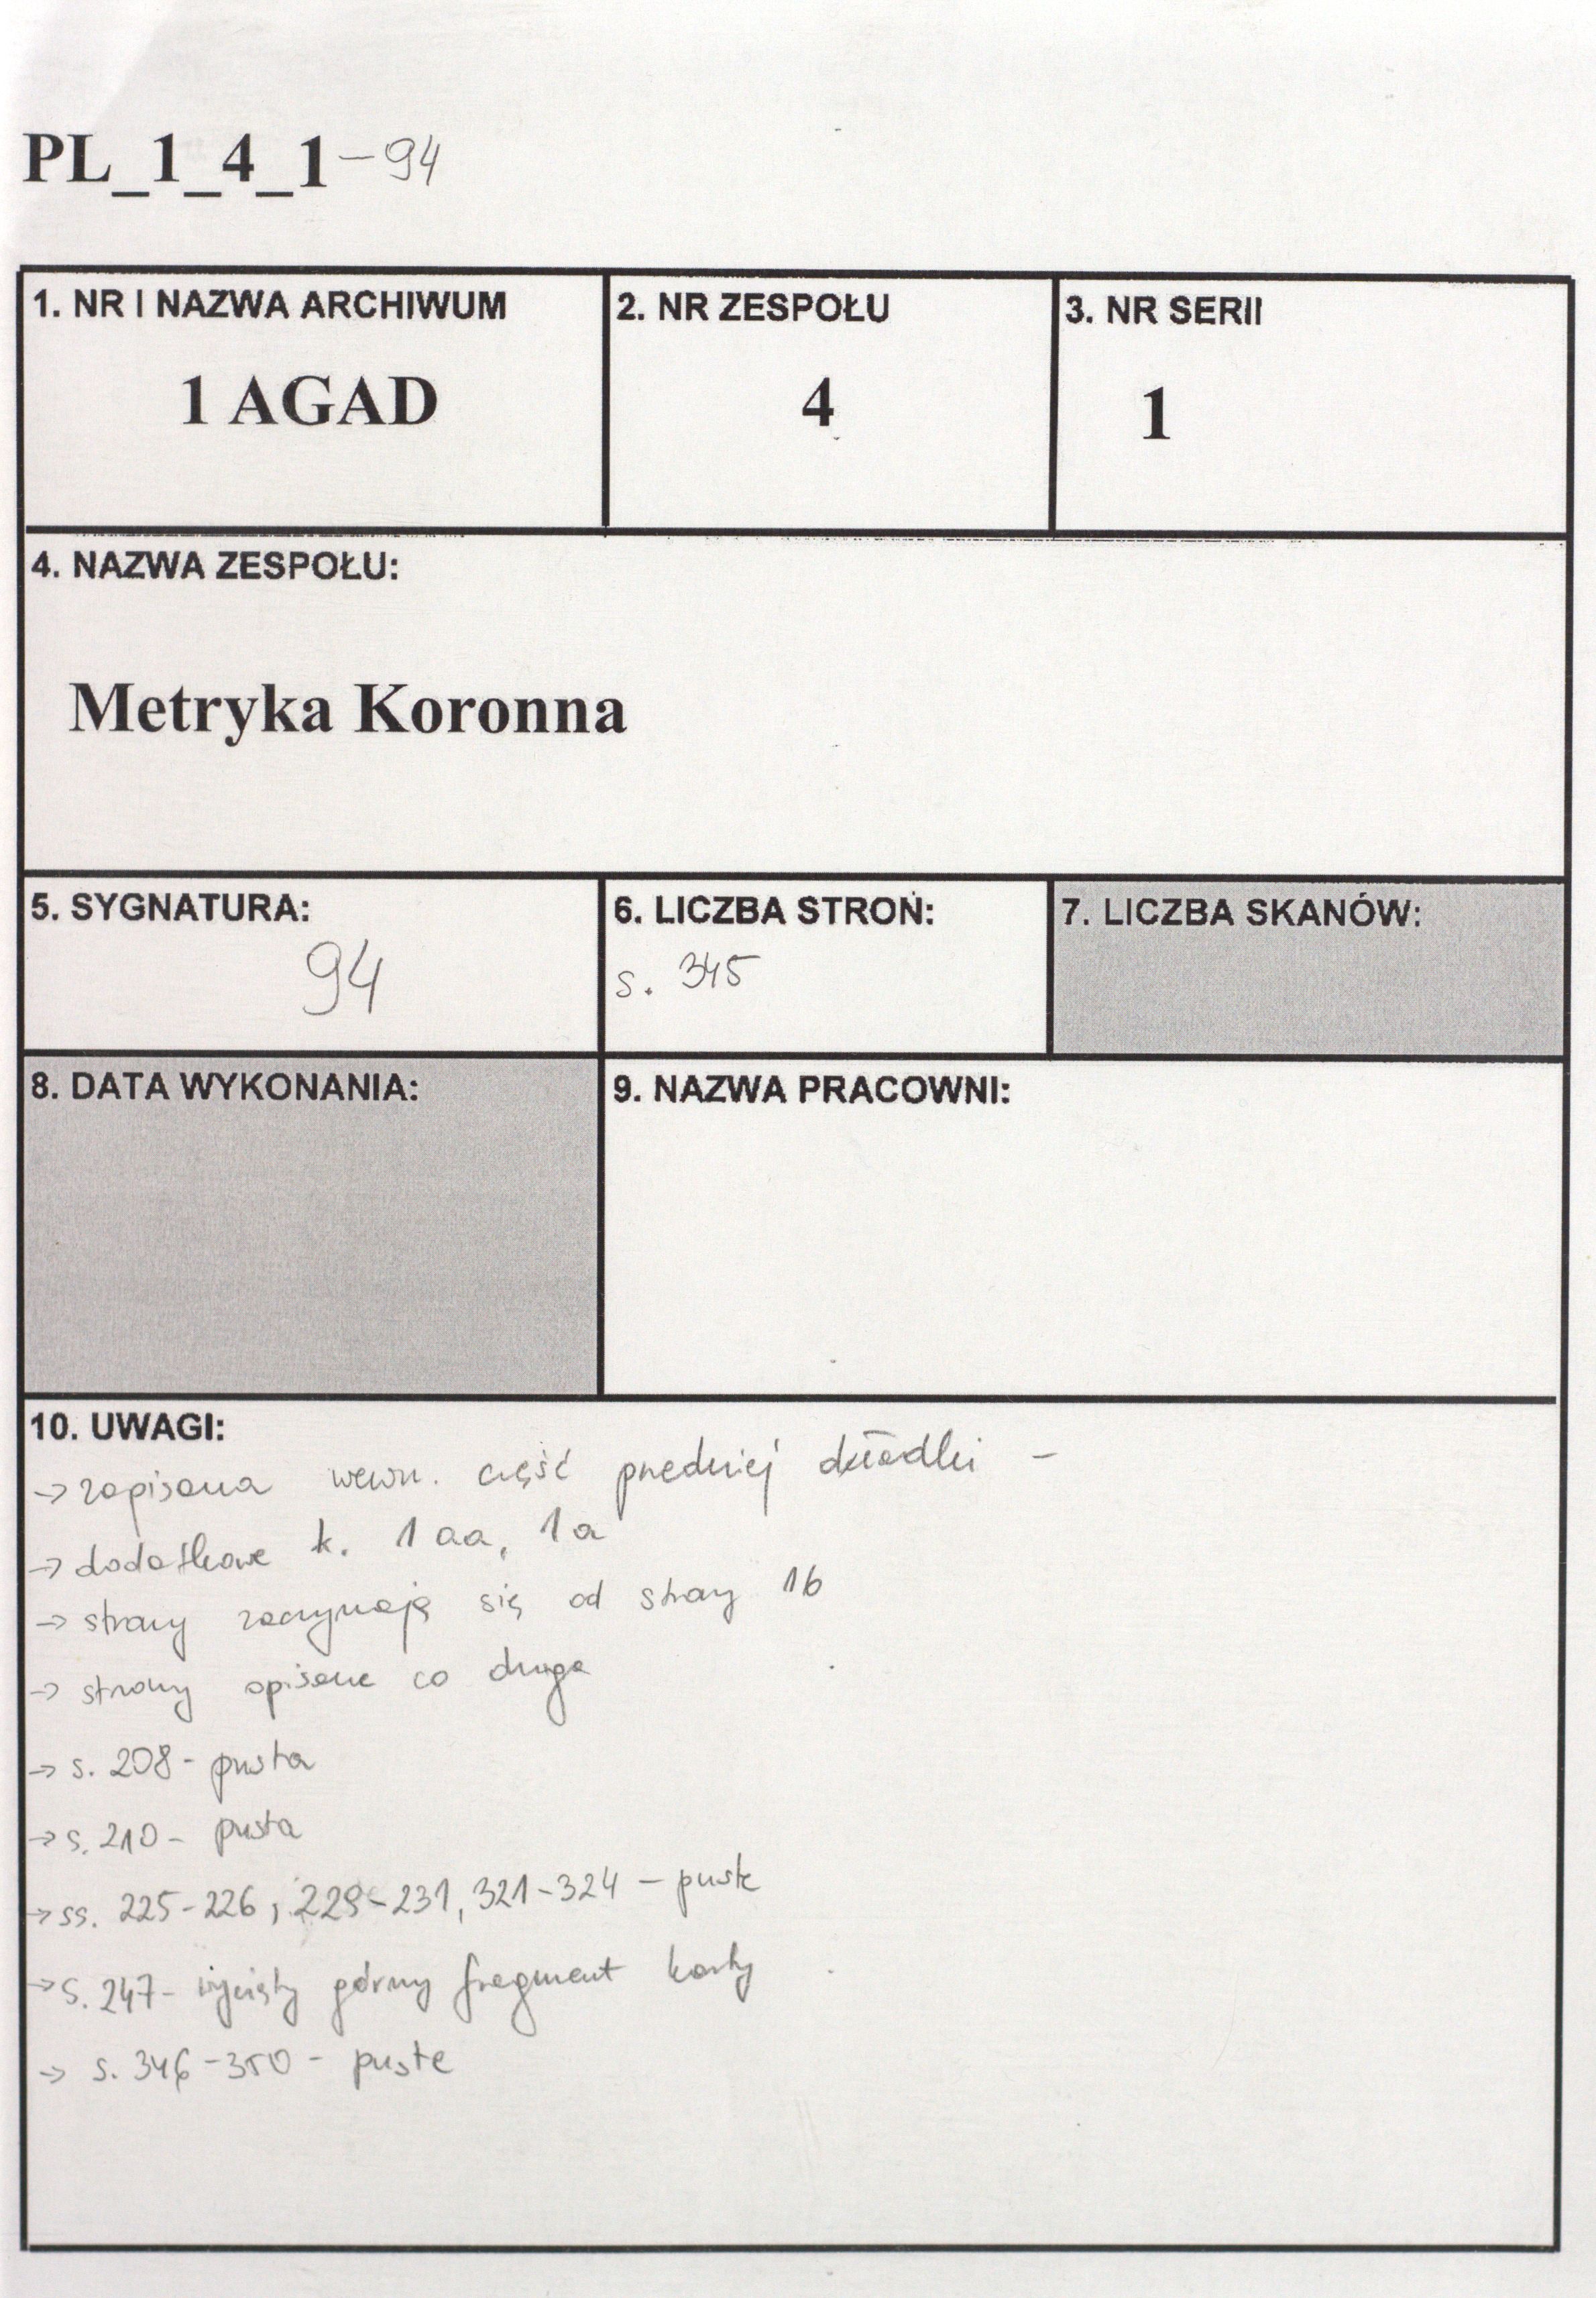 PL_1_4_1-94
1. NR I NAZWA ARCHIWUM
1 AGAD
2. NR ZESPOŁU
4
3. NR SERII
1
4. NAZWA ZESPOŁU:
Metryka Koronna
5. SYGNATURA:
94
6. LICZBA STRON:
s. 345
7. LICZBA SKANÓW:
8. DATA WYKONANIA:
9. NAZWA PRACOWNI:
10. UWAGI:
→ zapisana wewn. część przedniej okładki -
→ dodatkowe k. 1aa, 1a
→ strony zaczynają się od strony 16
→ strony opisane co druga
→ s. 208 - pusta
→ s. 210 - pusta
→ ss. 225-226, 229-231, 321-324 - puste
→ s. 247 - wycięty górny fragment karty
→ s. 346-350 - puste